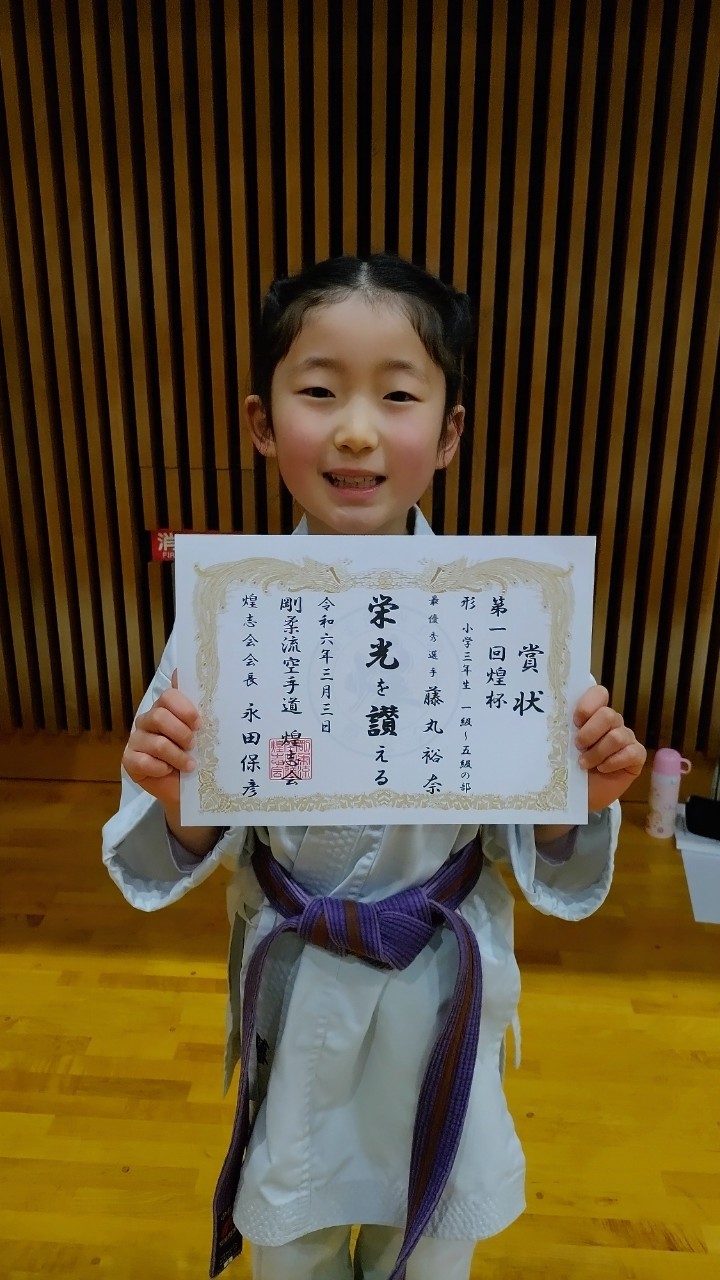 賞状
第一回煌杯
形 小学三年生 一級～五級の部
最優秀選手 藤丸裕奈
栄光を讃える
令和六年三月三日
剛柔流空手道 煌志会
煌志会会長 永田保彦
消